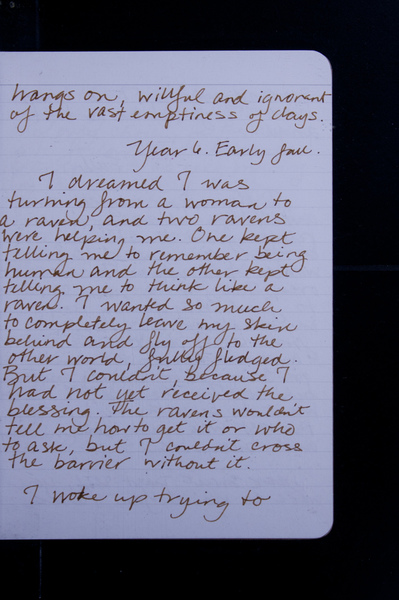 hangs on, willful and ignorant
of the vast emptiness of days.
Year 6. Early fall.
I dreamed I was
turning from a woman to
a raven, and two ravens
were helping me. One kept
telling me to remember being
human and the other kept
telling me to think like a
raven. I wanted so much
to completely leave my skin
behind and fly off to the
other world, fully fledged.
But I couldn't, because I
had not yet received the
blessing. The ravens wouldn't
tell me how to get it or who
to ask, but I couldn't cross
the barrier without it.
I woke up trying to